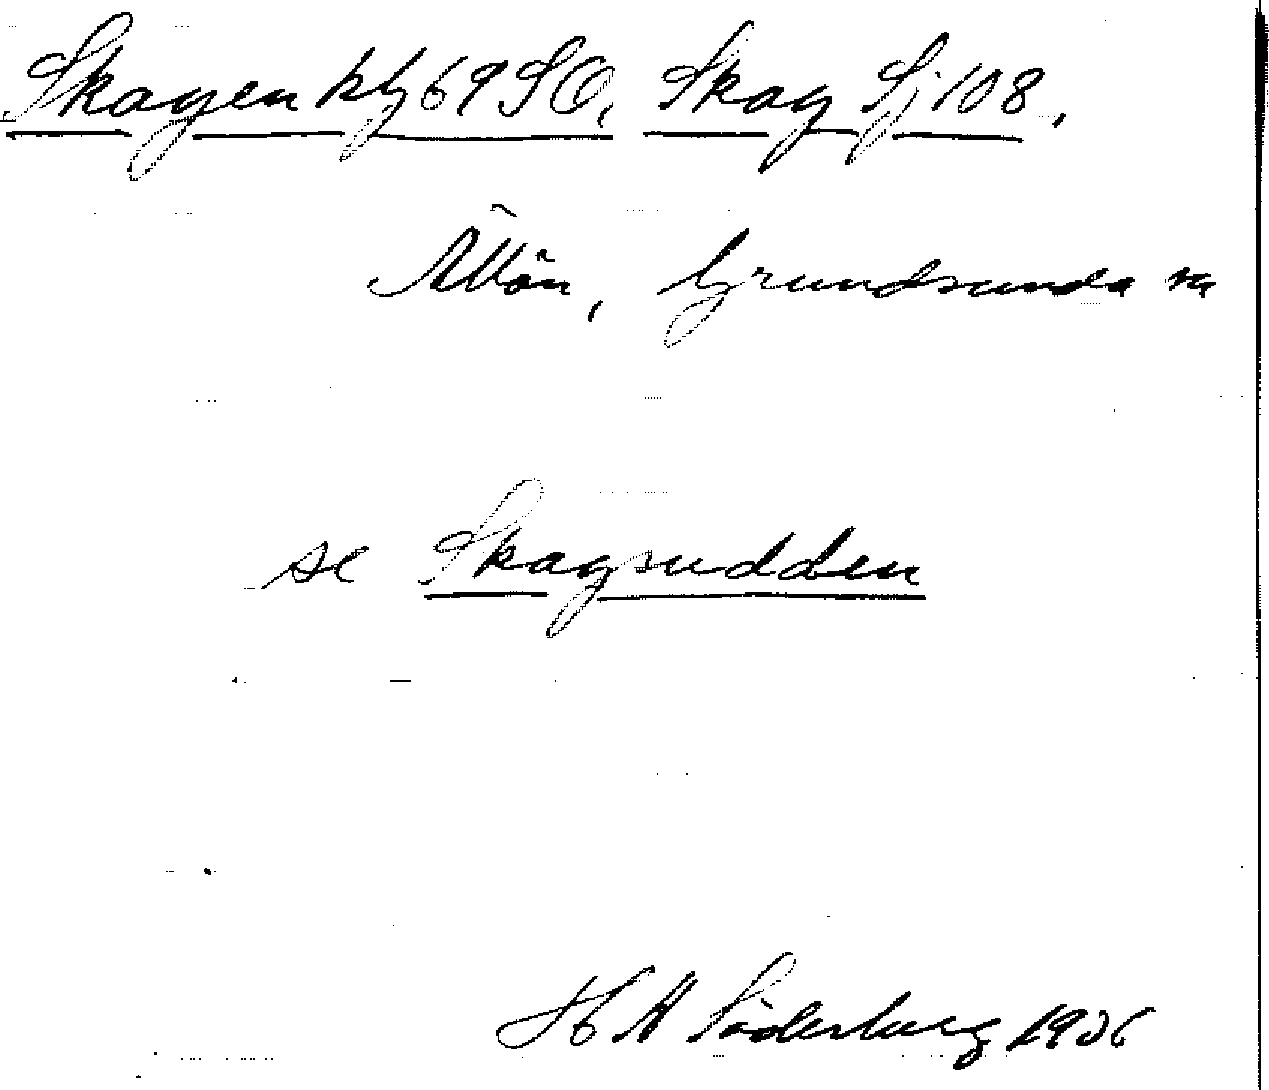 Skagen kbl 69 SO, Skag Sj 108,
Åvön, Grundsunda sn
se Skagsudden
H A Söderberg 1936